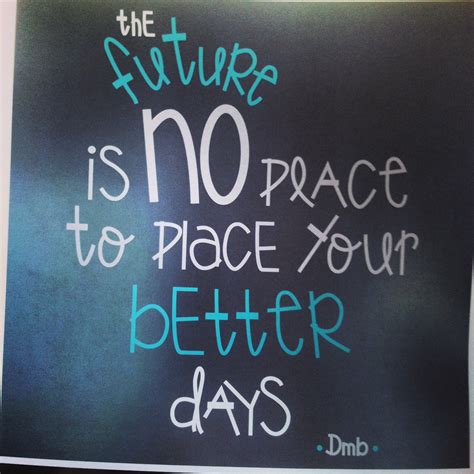 the
future
is NO PLACE
to PLACE Your
bETTER
dAYS
•Dmb•